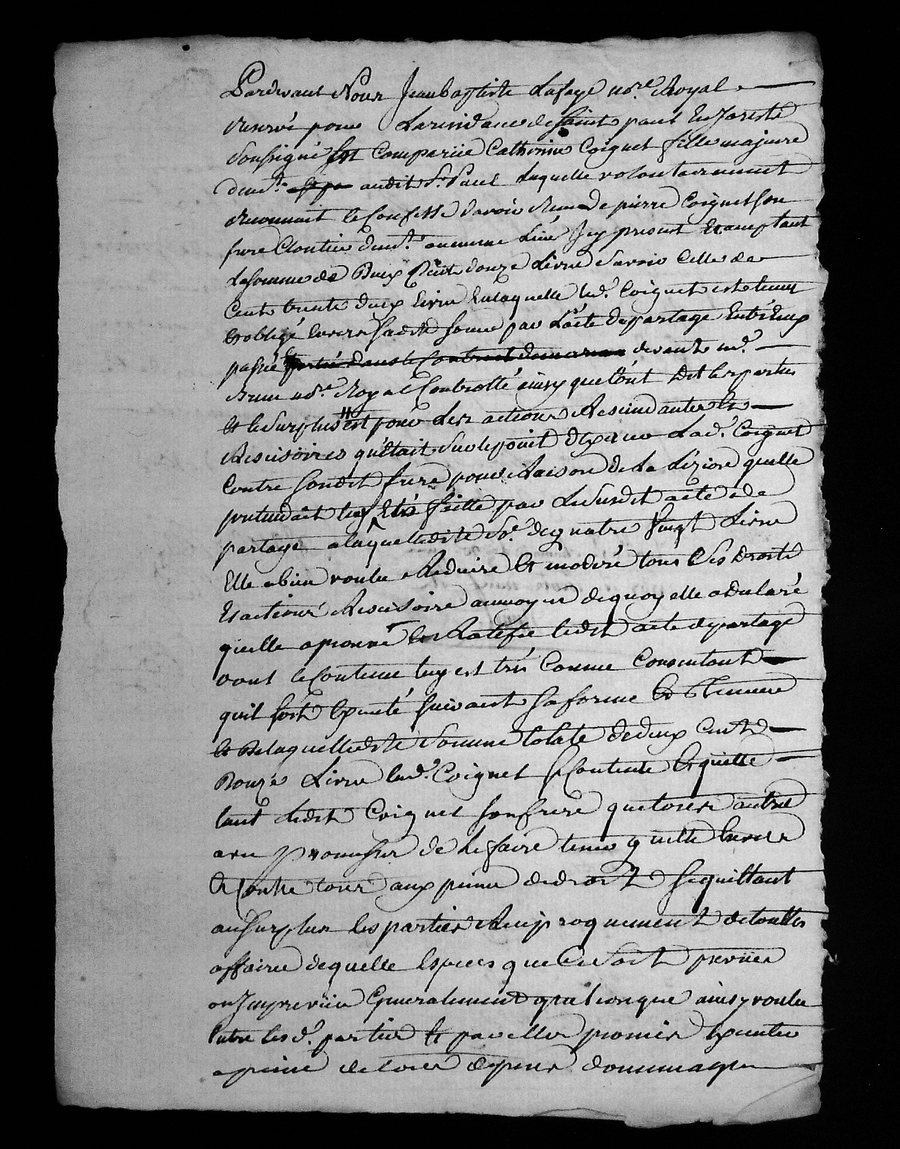 Pardevant Nous Jeanbaptiste Lafage no.re Royal
Reservé pour La residance de Saint paul En Jareste
Soussigné Est Comparüe Catherine Coignet fille majeure
demt. audit St. Paul Laquelle volontairement
Reconnait & Confesse d'avoir Reçu de pierre Coignet son
frere Cloutier demt. au meme Lieu Jcy present Et acceptant
La somme de Deux Cent douze Livres Savoir Celle de
Cent trente deux Livres En laquelle led. Coignet est tenu
& obligé Envers sadite soeur par L'acte de partage Entr'Eux
passé devant me.
Brun no.re Royal Controllé ainsy que l'ont Dit Les parties
Et le Surplus est pour Les actions Rescindantes Et
Rescisoires qu'etait Sur le point d'Exercer Lad. Coignet
Contre son dit frere pour Raison de La Lezion quelle
pretendait luy Etre faitte par Le Susdit acte de
partage a laquelle dite So.e de quatre Vingt Livres
Elle a bien voulu Reduire Et moderé tous Ses Droits
Et actions Rescisoire au moyen de quoy elle a declaré
quelle aprouve Et Ratifie ledit acte de partage
dont le Contenu luy est très Connu Consentant
quil sort Executé suivant sa forme Et Teneur
Et De laquelle dite Somme totale de deux Cents
Douze Livres lad. Coignet se Contente Et quitte
tant ledit Coignet son frere que tous autres
avec promesse de Le faire tenir quitte Envers
Et Contre tous aux peines de droit Se quittant
au Surplus les parties Reciproquement de touttes
affaires de quelle Espece que Ce Soit previie
ou Jmpreviie Generalement quelconque ainsy voulu
Entre lesd. parties Et par elles promis Executer
a peine de tous depens dommages